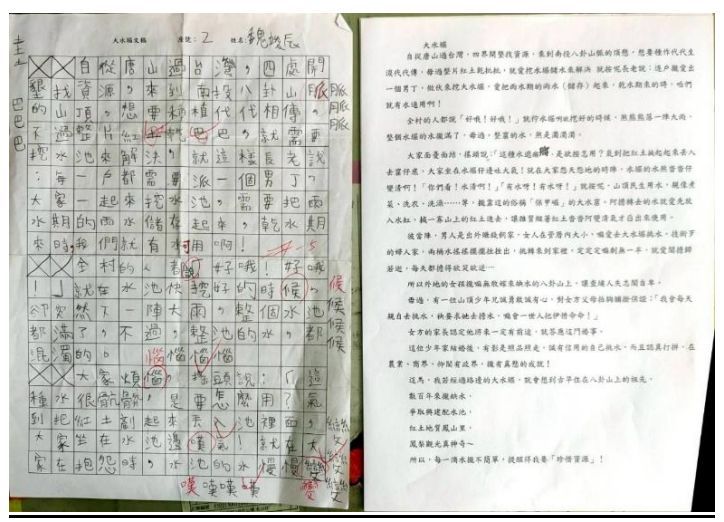 大水堀文稿 座號：2 姓名：魏
自從唐山過台灣，四處開
墾找資源，來到南投八卦山脈
的山頂，想要種植代代相傳。
不過整片紅 巴巴，就需要
挖水池來解決，就這樣長老說
：每一戶都需要派一個男丁，
大家一起來挖水池，需要把雨
水期的雨水儲存起來，乾水期
來時，我們就有水可用啊！
全村的人都說「好哦！好哦
！」就在水池快挖好的時候，
卻突然下一陣大雨，整個水池
都滿了，不過，整池的水，都
混濁的。
大家煩惱，搖頭說：「這
種水很骯髒，是要怎麼用？氣
到把紅土 起來丟入池裡面，
大家坐在水池邊嘆氣！就在大
家在抱怨時，水池的水慢慢變
脈脈脈
巴巴巴
候候候候
惱惱惱惱
嘆嘆嘆嘆
變變變
大水堀
自從唐山過台灣，四界開墾找資源，來到南投八卦山脈的頂懸，想要種作代代生
湠代代傳，毋過整片紅土乾 ，就愛挖水堀儲水來解決 就按呢長老說：逐戶攏愛出
一個男丁，做伙來挖水堀，愛把雨水期的雨水（儲存）起來，乾水期來的時，咱們
就有水通用啊！
全村的人都說「好哦！好哦！」就佇水堀 挖好的時候，煞熊熊落一陣大雨，
整個水堀的水攏滿了，毋過，整窟的水，煞是濁濁濁。
大家面憂面結，搖頭說：「這種水 ，是欲按怎用？氣到把紅土 起起來丟入
去窟仔底，大家坐在水堀仔邊吐大氣！就在大家怨天怨地的時陣，水堀的水煞沓沓仔
變清啊！「你們看！水清啊！」「有水呀！有水呀！」就按呢，山頂民生用水，親像煮
菜、洗衣、洗澡……等，攏靠這的俗稱「 」的大水窟。阿 轉去的水就愛先放
入水缸，摵一寡山上的紅土過去，讓雜質綴著紅土沓沓仔變清氣才舀出來使用。
彼當陣，男人是出外賺錢飼家，女人在 厝內大小，嘛愛去大水堀挑水，技術
的婦人家，兩桶水搖搖擺擺拄拄出，挑轉來到家裡，定定定嘛剩無一半，就愛閣
若遊，每天都 得欲哭欲 …
所以外地的查某攏嘛無欲嫁來缺水的八卦山上，讓遮濟人失志閣自卑。
毋過，有一位山頂少年兄誠勇敢誠有心，對女方父母拍胸坎保證：「我會每天
親自去挑水，袂要求她去 水，嘛會一世人把伊惜命命！」
女方的家長認定他將來一定有前途，就答應這門婚事。
這位少年家結婚後，有影是照品照走，誠有信用的自己挑水，而且認真打拼，在
農業、商界、 政界，攏有真懸的成就！
這馬，我若經過路邊的大水堀，就會想到古早 在八卦山上的祖先。
數百年來攏缺水，
爭取興建配水池。
紅土地質鳳山里，
鳳梨觀光真神奇～
所以，每一滴水攏不簡單，提醒 我要「珍惜資源」！